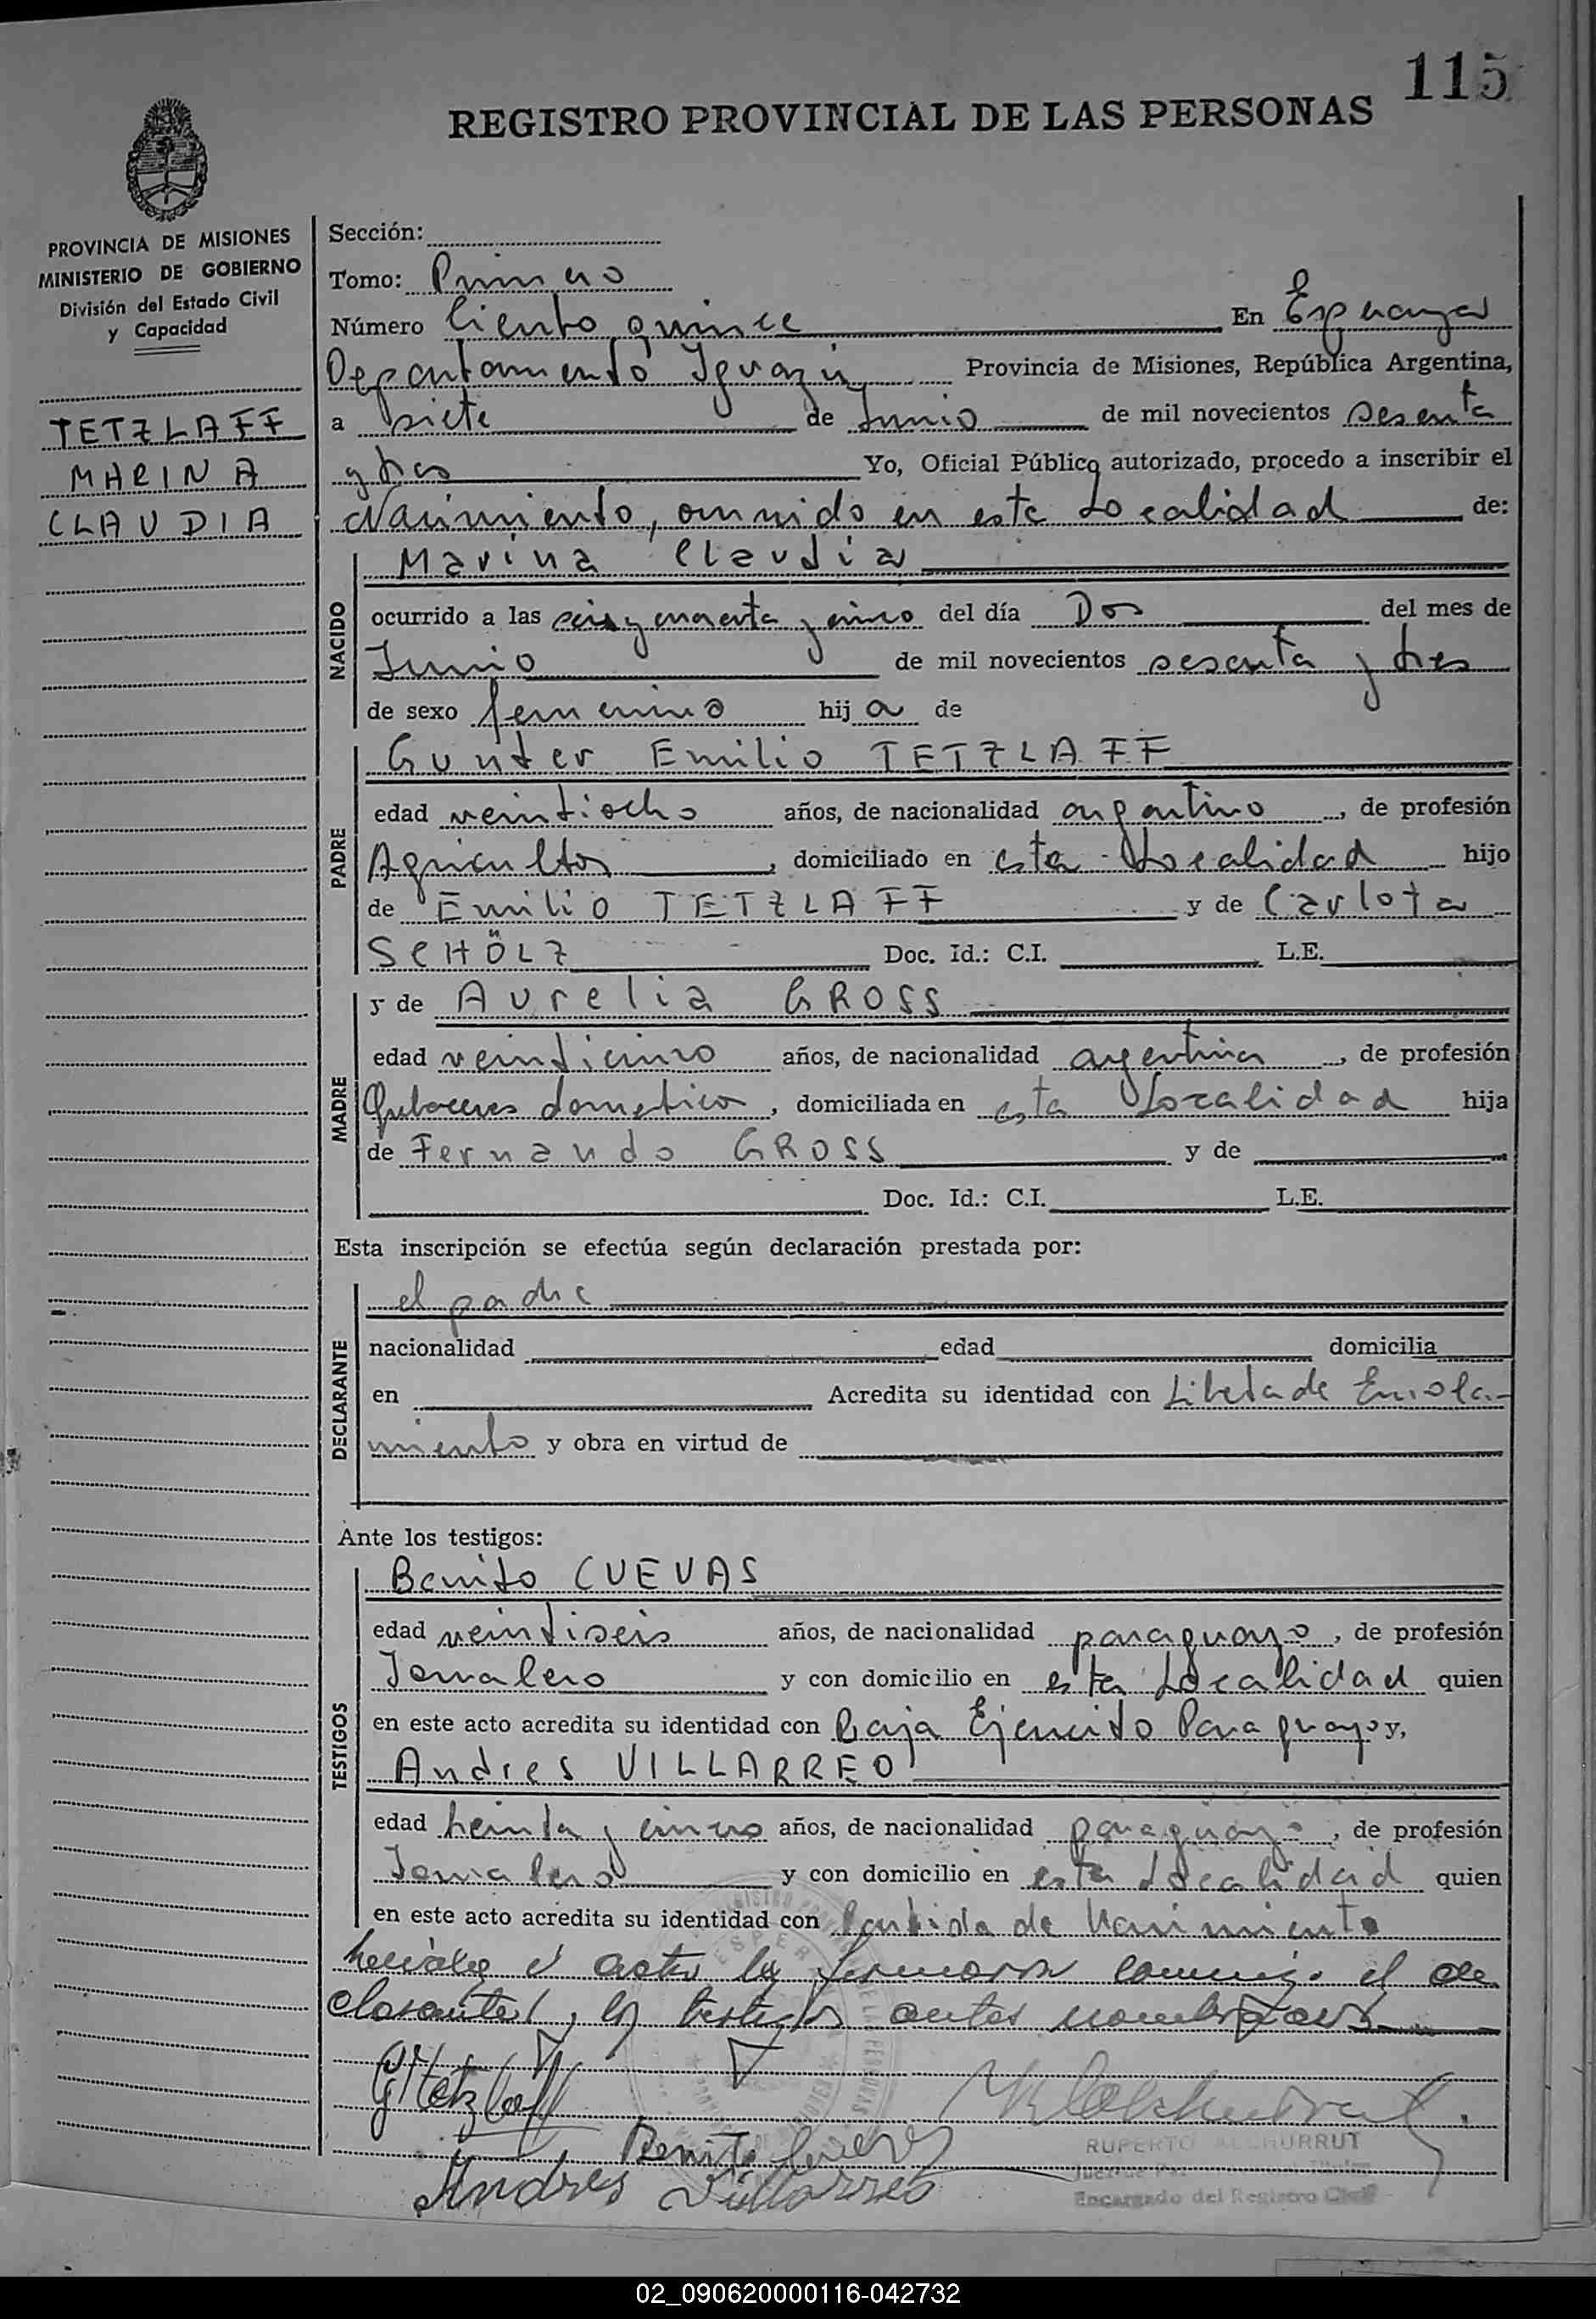 115
REGISTRO PROVINCIAL DE LAS PERSONAS
PROVINCIA DE MISIONES
MINISTERIO DE GOBIERNO
División del Estado Civil
y Capacidad
TETZLAFF
MARINA
CLAUDIA
Sección:
Tomo: Primero
Número Ciento quince En Esperanza
Departamento Iguazú Provincia de Misiones, República Argentina,
a siete de Junio de mil novecientos sesenta
y tres Yo, Oficial Público autorizado, procedo a inscribir el
Nacimiento, ocurrido en esta Localidad de:
NACIDO
Marina Claudia
ocurrido a las seis y cuarenta y cinco del día Dos del mes de
Junio de mil novecientos sesenta y tres
de sexo femenino hij a de
PADRE
Gunter Emilio TETZLAFF
edad veintiocho años, de nacionalidad argentino, de profesión
Agricultor, domiciliado en esta Localidad hijo
de Emilio TETZLAFF y de Carlota
SCHÖLZ Doc. Id.: C.I. L.E.
MADRE
y de Aurelia GROSS
edad veinticinco años, de nacionalidad argentina, de profesión
domiciliada en esta Localidad hija
de Fernando GROSS y de
Doc. Id.: C.I. L.E.
Esta inscripción se efectúa según declaración prestada por:
DECLARANTE
el padre
nacionalidad edad domicilia
en Acredita su identidad con Libreta de Enrola-
miento y obra en virtud de
Ante los testigos:
TESTIGOS
Benito CUEVAS
edad veintiseis años, de nacionalidad paraguayo, de profesión
Jornalero y con domicilio en esta Localidad quien
en este acto acredita su identidad con Baja Ejercito Paraguayo y,
Andres VILLARREO
edad treinta y cinco años, de nacionalidad paraguayo, de profesión
Jornalero y con domicilio en esta Localidad quien
en este acto acredita su identidad con Partida de Nacimiento
el acta la firmaron conmigo el de
clarante y los testigos antes nombrados
GTetzlaff
Benito Cuevas
Andres Villarreo
RUPERTO
Encargado del Registro Civil
02_090620000116-042732